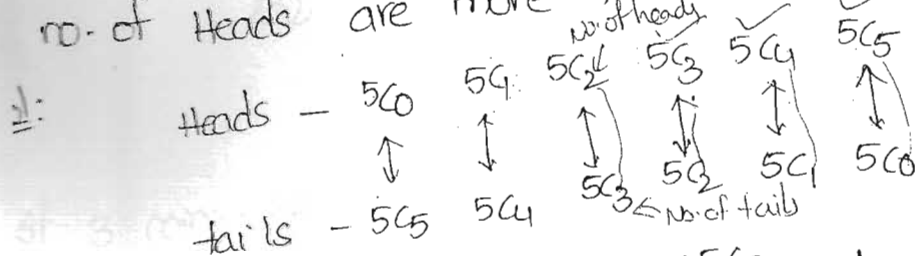 no. of Heads are more
No. of heads
1:
Heads - 5C0 5C1 5C2 5C3 5C4 5C5
tails - 5C5 5C4 5C3 5C2 5C1 5C0
No. of tails